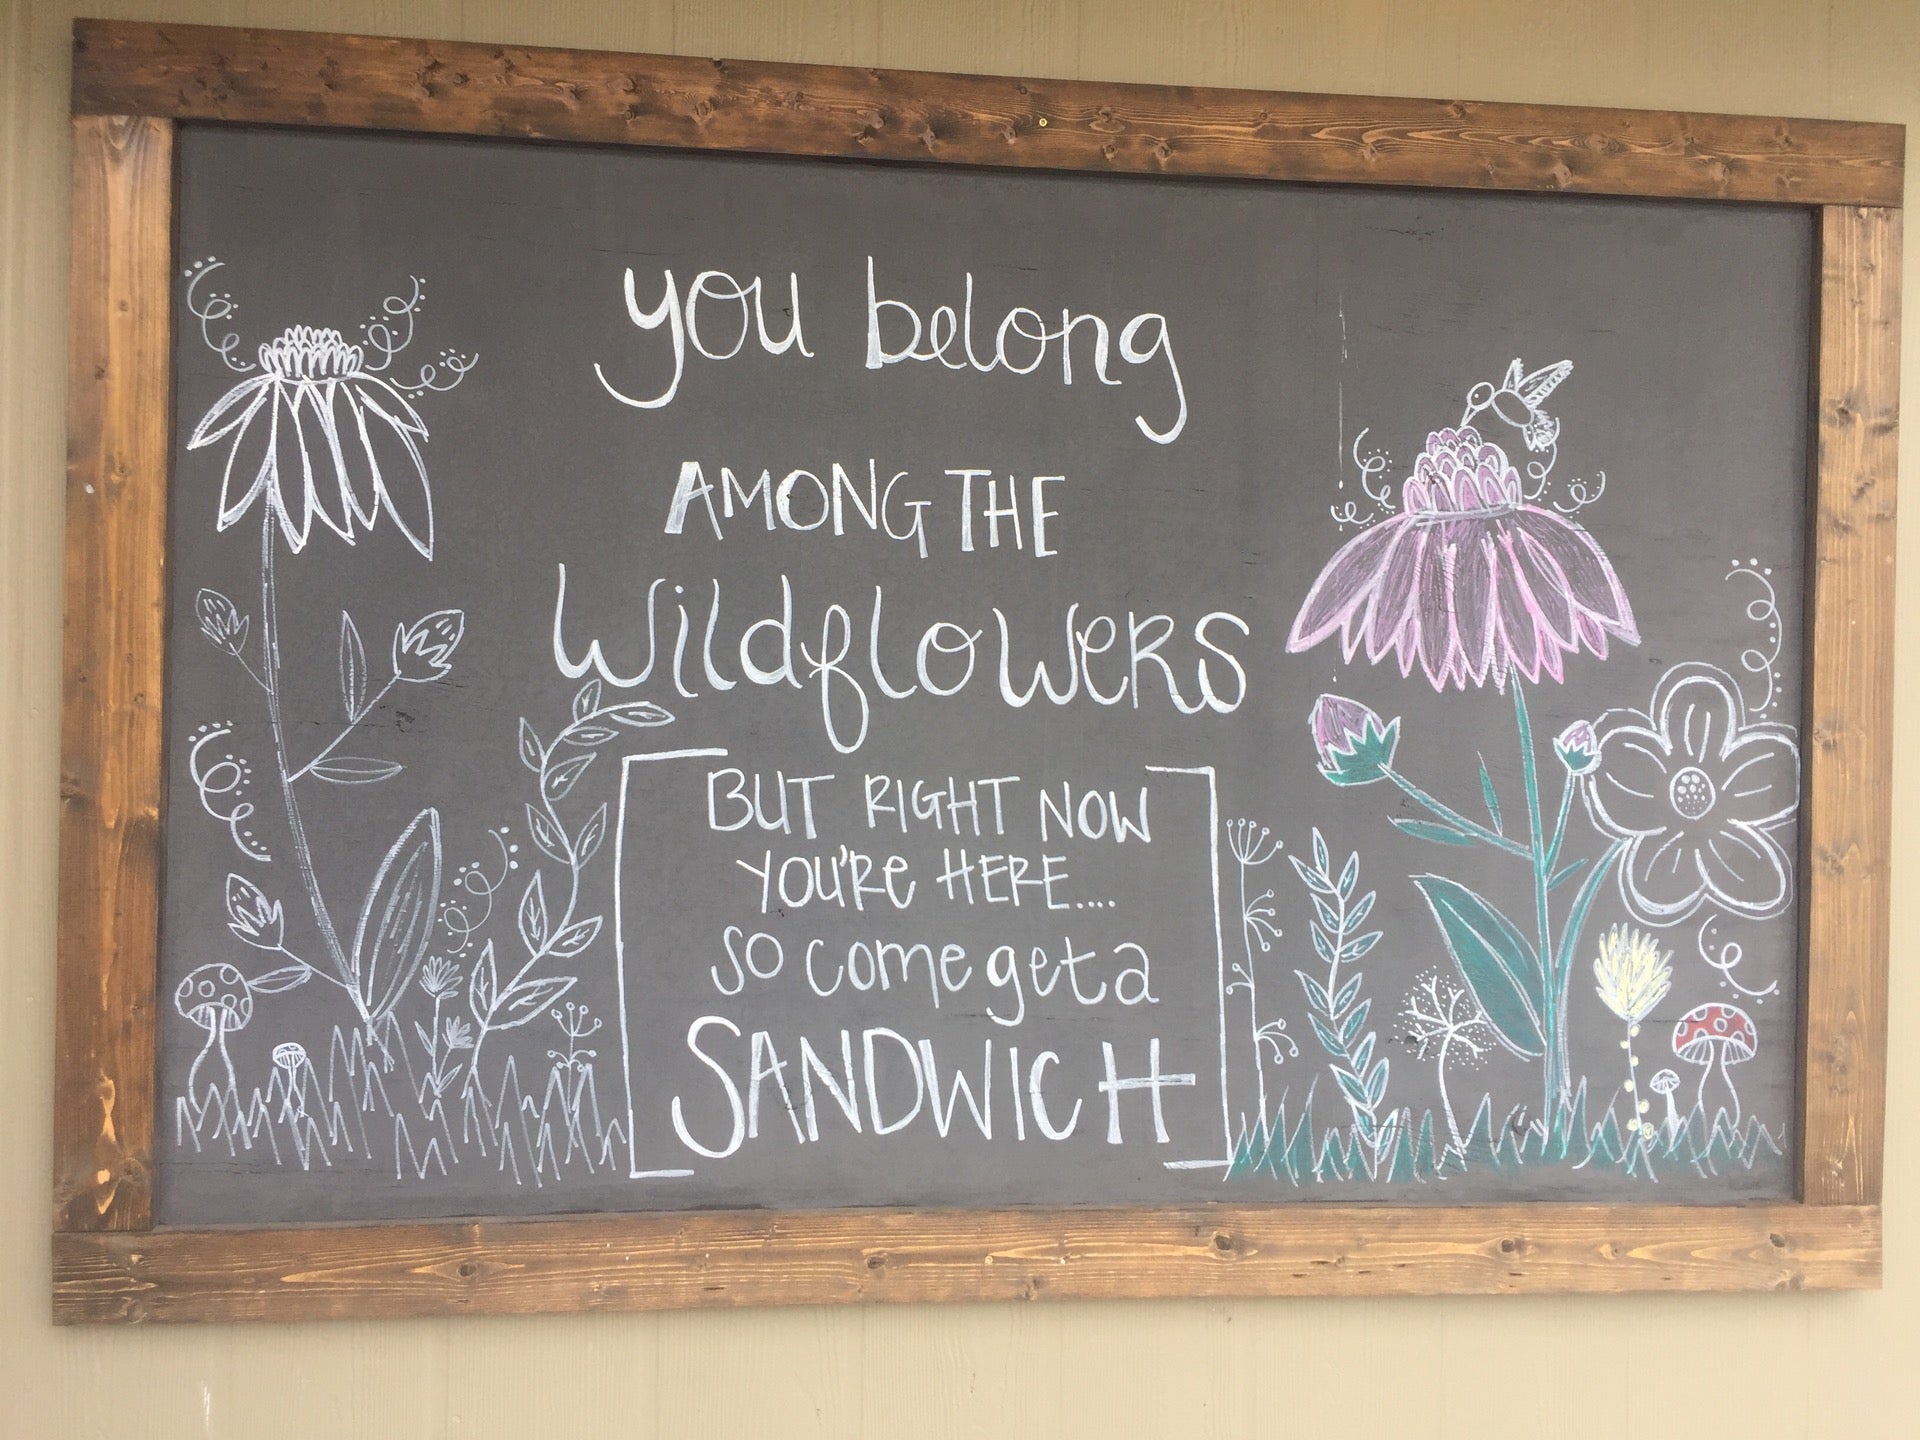 you belong
AMONG THE
WildfloweRS
BUT RIGHT NOW
YOU'Re HERE....
so come get a
SANDWICH